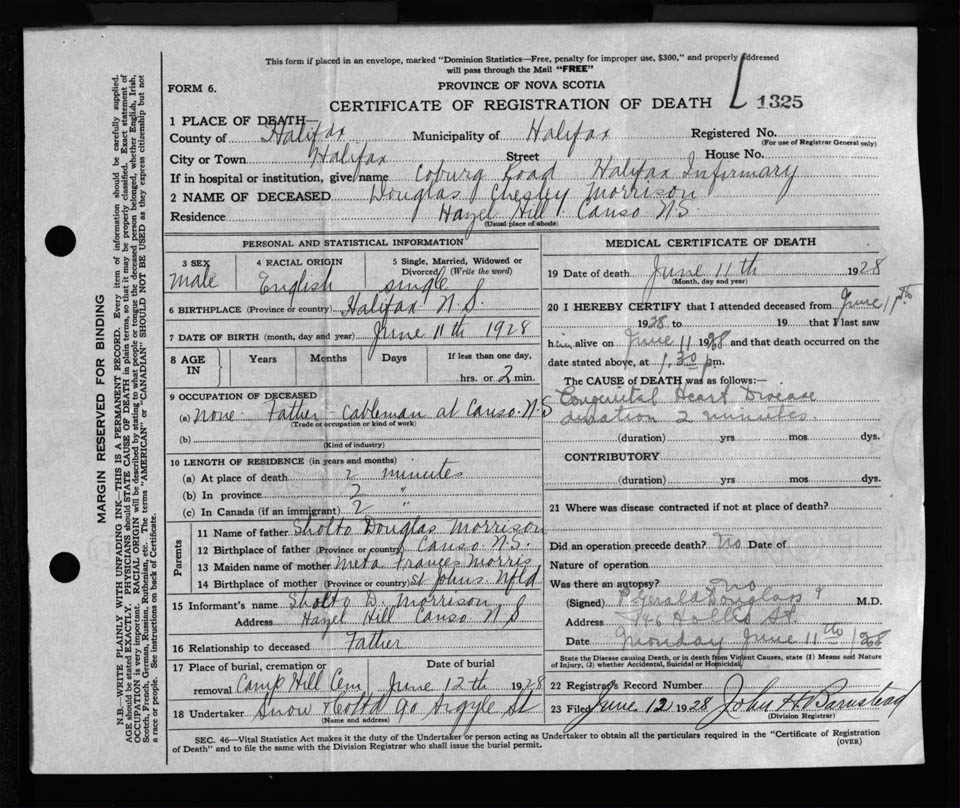 This form if placed in an envelope, marked "Dominion Statistics—Free, penalty for improper use, $300," and properly addressed
will pass through the Mail "FREE"
FORM 6.
PROVINCE OF NOVA SCOTIA
CERTIFICATE OF REGISTRATION OF DEATH L 1325
1 PLACE OF DEATH—
County of Halifax Municipality of Halifax Registered No.
(For use of Registrar General only)
City or Town Halifax Street House No.
If in hospital or institution, give name Coburg Road Halifax Infirmary
2 NAME OF DECEASED Douglas Chesley Morrison
Residence Hazel Hill Canso N.S
(Usual place of abode)
PERSONAL AND STATISTICAL INFORMATION
3 SEX 4 RACIAL ORIGIN 5 Single, Married, Widowed or
Divorced (Write the word)
Male English Single
6 BIRTHPLACE (Province or country) Halifax N.S.
7 DATE OF BIRTH (month, day and year) June 11th 1928
8 AGE IN Years Months Days If less than one day,
hrs. or 2 min.
9 OCCUPATION OF DECEASED
(a) none - Father - Cableman at Canso. N.S
(Trade or occupation or kind of work)
(b)
(Kind of industry)
10 LENGTH OF RESIDENCE (in years and months)
(a) At place of death 2 minutes
(b) In province 2 "
(c) In Canada (if an immigrant) 2 "
Parents
11 Name of father Sholto Douglas Morrison
12 Birthplace of father (Province or country) Canso. N.S.
13 Maiden name of mother Meta Frances Morris
14 Birthplace of mother (Province or country) St Johns. Nfld
15 Informant's name Sholto D. Morrison
Address Hazel Hill Canso N S
16 Relationship to deceased Father
17 Place of burial, cremation or Date of burial
removal Camp Hill Cem June 12th 1928
18 Undertaker Snow 90 Argyle St
(Name and address)
MEDICAL CERTIFICATE OF DEATH
19 Date of death June 11th 1928
(Month, day and year)
20 I HEREBY CERTIFY that I attended deceased from June 11th
1928 to 19 that I last saw
him alive on June 11 1928 and that death occurred on the
date stated above, at 1.30 p.m.
The CAUSE of DEATH was as follows:—
Congenital Heart Disease
duration 2 minutes.
(duration) yrs mos dys.
CONTRIBUTORY
(duration) yrs mos dys.
21 Where was disease contracted if not at place of death?
Did an operation precede death? No Date of
Nature of operation
Was there an autopsy? No
(Signed) P Gerald Douglass M.D.
Address Hollis St.
Date Monday June 11th 1928
State the Disease causing Death, or in death from Violent Causes, state (1) Means and Nature
of Injury, (2) whether Accidental, Suicidal or Homicidal.
22 Registrar's Record Number
23 Filed June 12 1928 John H Barnstead
(Division Registrar)
SEC. 46—Vital Statistics Act makes it the duty of the Undertaker or person acting as Undertaker to obtain all the particulars required in the "Certificate of Registration
of Death" and to file the same with the Division Registrar who shall issue the burial permit.
(OVER)
MARGIN RESERVED FOR BINDING
N.B.—WRITE PLAINLY WITH UNFADING INK—THIS IS A PERMANENT RECORD. Every item of information should be carefully supplied.
AGE should be stated EXACTLY. PHYSICIANS should STATE CAUSE OF DEATH in plain terms, so that it may be properly classified. Exact statement of
OCCUPATION is very important. RACIAL ORIGIN will be described by stating to what people or tongue the deceased person belonged, whether English, Irish,
Scotch, French, German, Russian, Ruthenian, etc. The terms "AMERICAN" or "CANADIAN" SHOULD NOT BE USED as they express citizenship but not
a race or people. See instructions on back of Certificate.